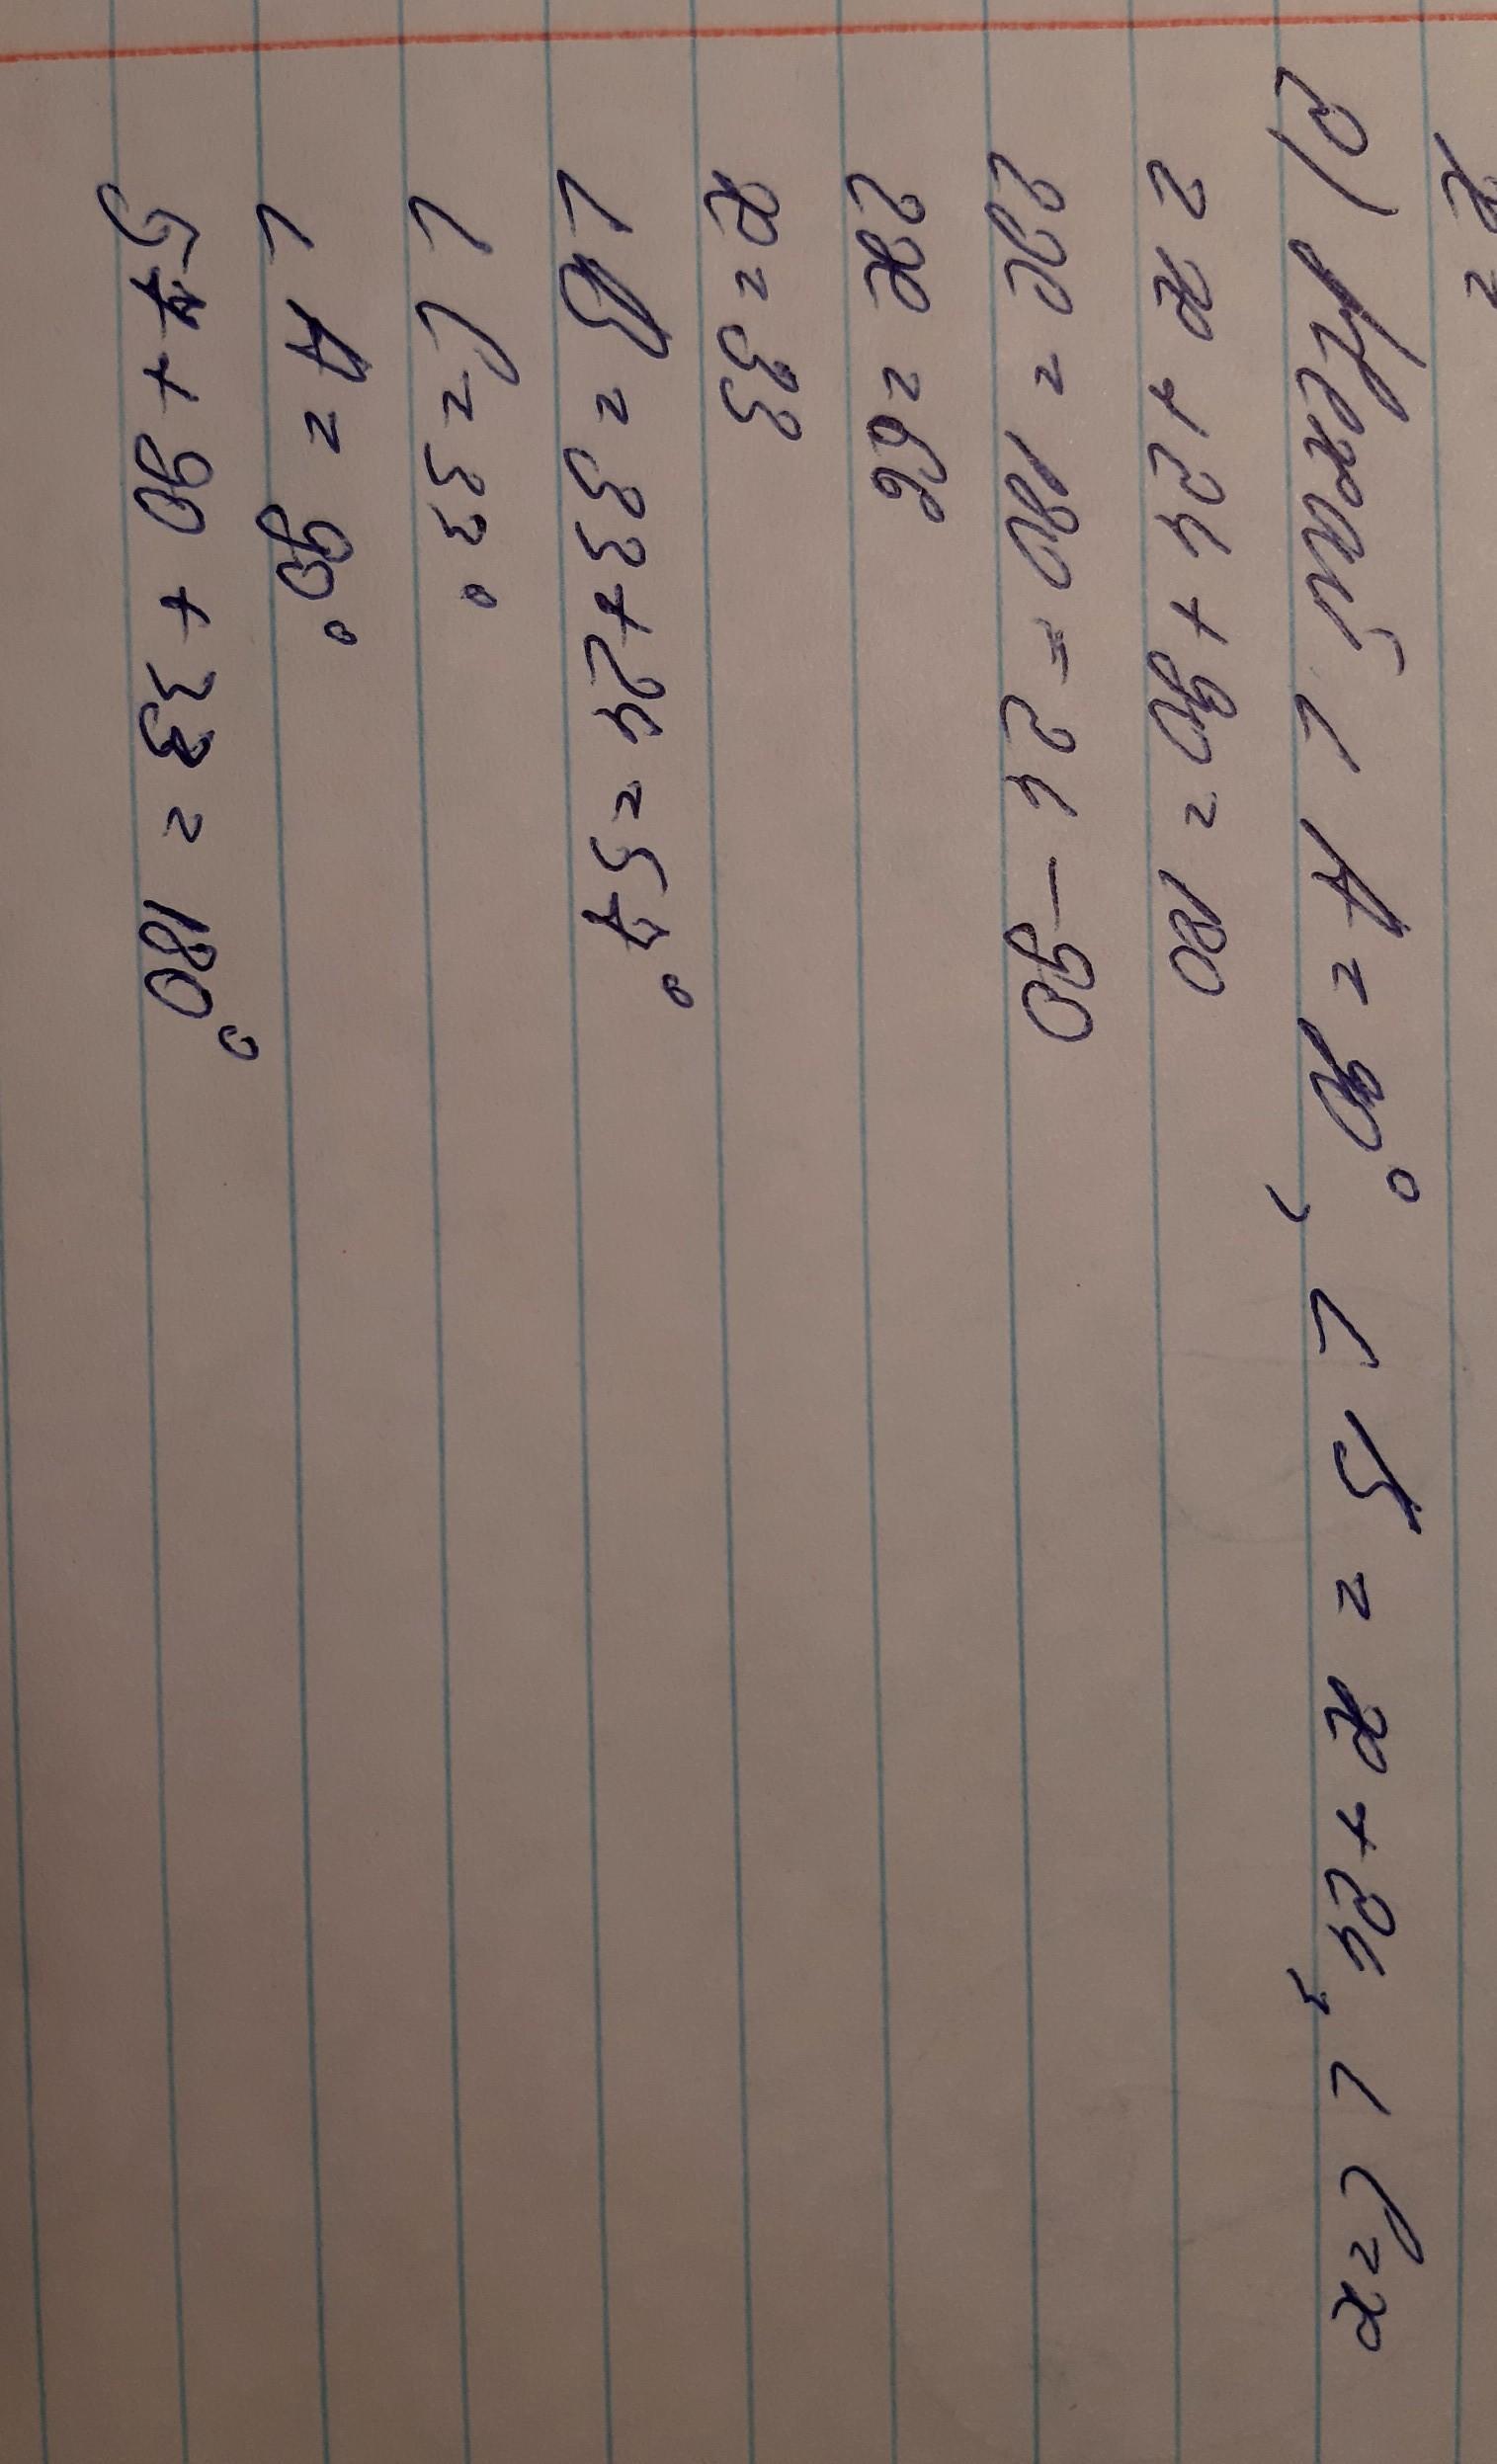 2) Нехай ∠ A = 90°, ∠ B = x + 24, ∠ C = x
2 x + 24 + 90 = 180
2x = 180 - 24 - 90
2x = 66
x = 33
∠ B = 33 + 24 = 57°
∠ C = 33°
∠ A = 90°
57 + 90 + 33 = 180°